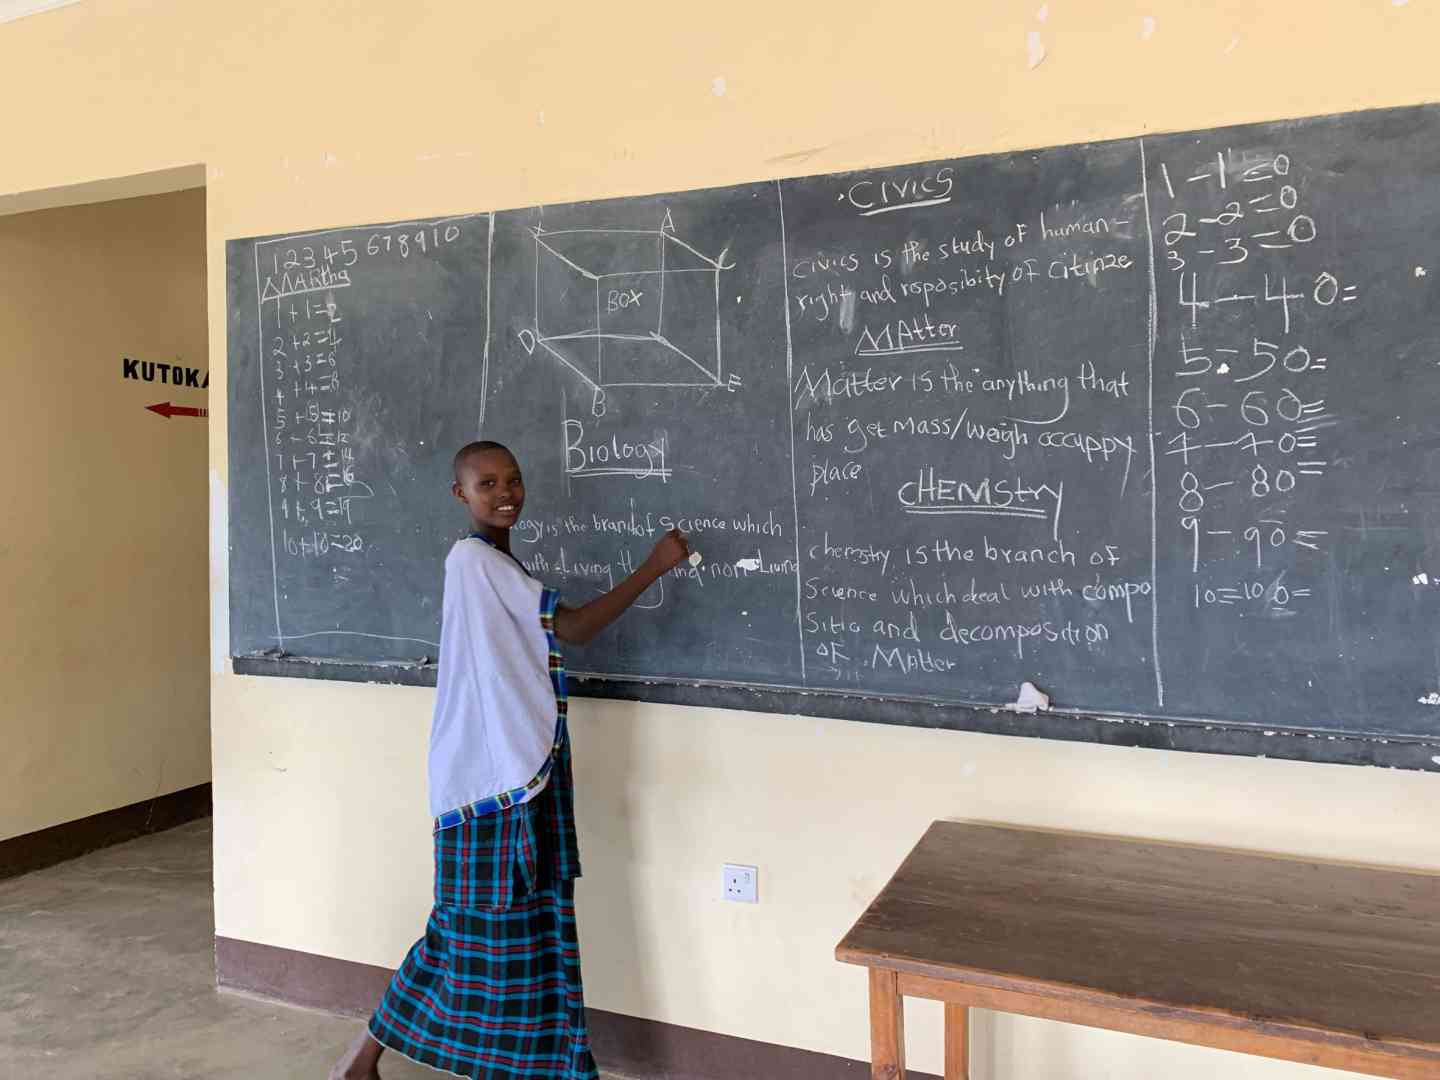 KUTOKA
1 2 3 4 5 6 7 8 9 10
MARtha
1 + 1 = 2
2 + 2 = 4
3 + 3 = 6
4 + 4 = 8
5 + 5 = 10
6 - 6 = 12
7 + 7 = 14
8 + 8 = 16
9 + 9 = 19
10 + 10 = 20
X A
C
BOX
D
E
B
Biology
ogy is the branch of Science which
with Living and non Living
CIVICS
Civics is the study of human -
right and resposibity of citinze
MAtter
Matter is the anything that
has get mass/weigh occuppy
place
CHEMStry
chemstry is the branch of
Science which deal with compo
sitio and decomposition
OF. Matter
1 - 1 = 0
2 - 2 = 0
3 - 3 = 0
4 - 4 0 =
5 - 5 0 =
6 - 6 0 =
7 - 7 0 =
8 - 8 0 =
9 - 9 0 =
10 = 10 0 =